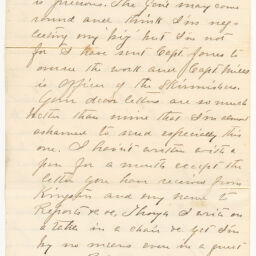 is precious. The Genl may come
round and think I'm neg-
lecting my big but I'm not
for I have sent Capt Jones to
the work and Capt Miles
is Officer of the Skirmishers.
Your dear letters are so much
better than mine that I'm almost
ashamed to send especially this
one. I hain't written with a
pen for a month except the
letter you have received from
Kingston and my name to
Reports &c &c. Though I write on
a table in a chair &c yet I'm
by no means even in a quiet